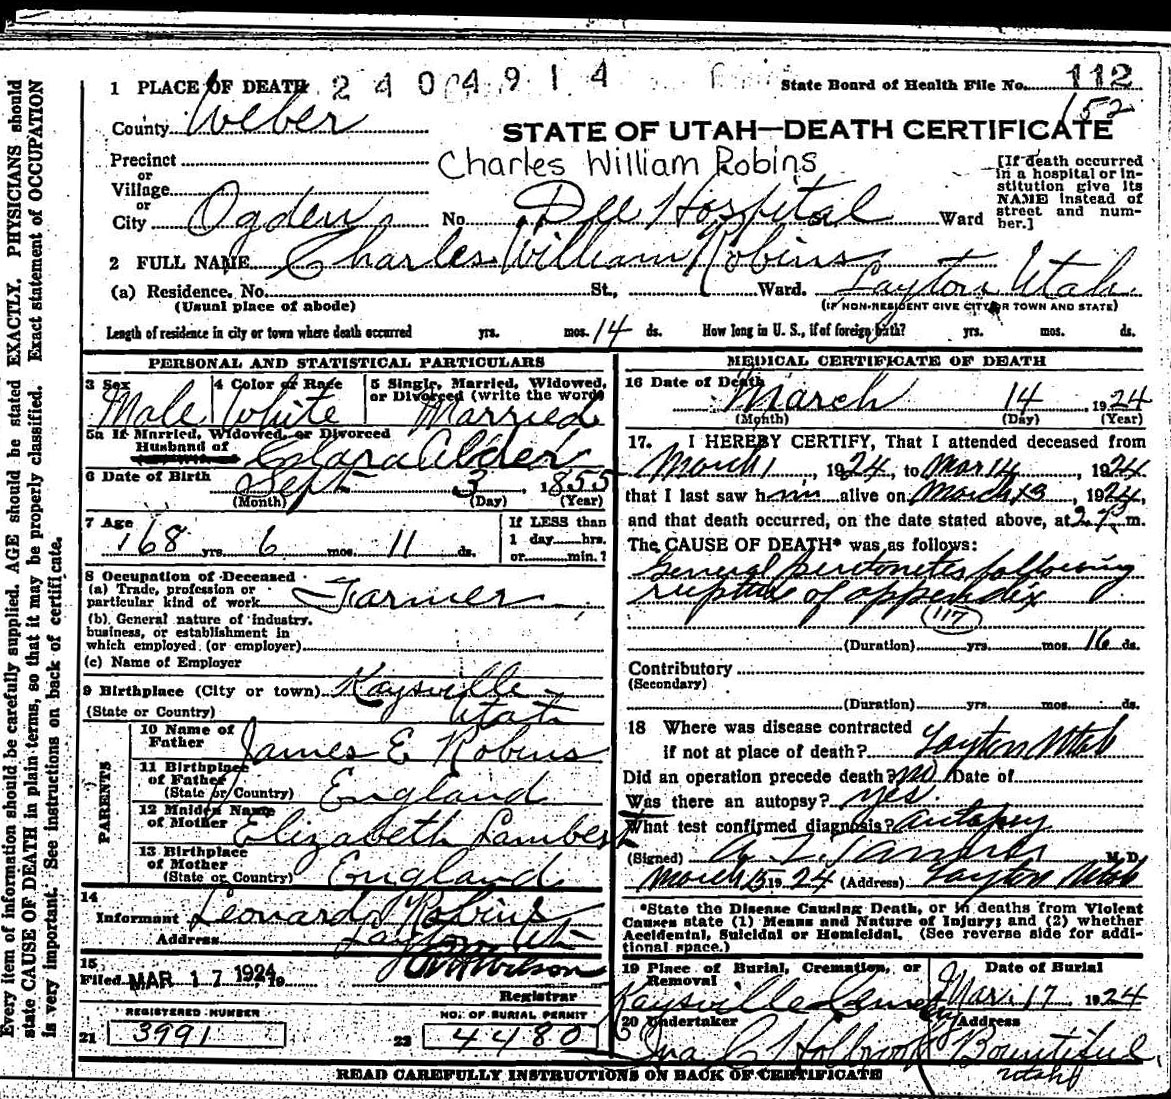 1 PLACE OF DEATH 2404914 State Board of Health File No. 112
152
County Weber STATE OF UTAH—DEATH CERTIFICATE
Precinct Charles William Robins
or
Village
or
City Ogden No. Dee Hospital St. Ward
[If death occurred
in a hospital or in-
stitution give its
NAME instead of
street and num-
ber.]
2 FULL NAME Charles William Robins
(a) Residence. No. St., Ward. Layton Utah
(Usual place of abode) (IF NON-RESIDENT GIVE CITY OR TOWN AND STATE)
Length of residence in city or town where death occurred yrs. mos. 14 ds. How long in U. S., if of foreign birth? yrs. mos. ds.
PERSONAL AND STATISTICAL PARTICULARS
3 Sex 4 Color or Race 5 Single, Married, Widowed,
or Divorced (write the word)
Male White Married
5a If Married, Widowed, or Divorced
Husband of Clara Alder
6 Date of Birth Sept 3 1855
(Month) (Day) (Year)
7 Age 68 yrs. 6 mos. 11 ds.
If LESS than
1 day hrs.
or min.?
8 Occupation of Deceased
(a) Trade, profession or
particular kind of work Farmer
(b) General nature of industry,
business, or establishment in
which employed (or employer)
(c) Name of Employer
9 Birthplace (City or town) Kaysville
(State or Country) Utah
PARENTS
10 Name of
Father James E Robins
11 Birthplace
of Father
(State or Country) England
12 Maiden Name
of Mother Elizabeth Lambert
13 Birthplace
of Mother
(State or Country) England
14
Informant Leonard J Robins
Address Layton Ut.
15
Filed MAR 17 1924 19 Wilson
Registrar
REGISTERED NUMBER NO. OF BURIAL PERMIT
21 3991 22 4480
MEDICAL CERTIFICATE OF DEATH
16 Date of Death
March 14, 1924
(Month) (Day) (Year)
17. I HEREBY CERTIFY, That I attended deceased from
March 1 1924, to Mar 14, 1924
that I last saw him alive on March 13, 1924,
and that death occurred, on the date stated above, at m.
The CAUSE OF DEATH* was as follows:
General peritonitis following
rupture of appendix
117
(Duration) yrs. mos. 16 ds.
Contributory
(Secondary)
(Duration) yrs. mos. ds.
18 Where was disease contracted
if not at place of death? Layton Utah
Did an operation precede death? no Date of
Was there an autopsy? yes
What test confirmed diagnosis? autopsy
(Signed) M. D.
March 15 1924 (Address) Layton Utah
*State the Disease Causing Death, or in deaths from Violent
Causes state (1) Means and Nature of Injury; and (2) whether
Accidental, Suicidal or Homicidal. (See reverse side for addi-
tional space.)
19 Place of Burial, Cremation, or
Removal
Date of Burial
Kaysville Cemetery Mar. 17 1924
20 Undertaker Address
Ira C Holbrook Bountiful
Utah
READ CAREFULLY INSTRUCTIONS ON BACK OF CERTIFICATE
Every item of information should be carefully supplied. AGE should be stated EXACTLY. PHYSICIANS should
state CAUSE OF DEATH in plain terms, so that it may be properly classified. Exact statement of OCCUPATION
is very important. See instructions on back of certificate.